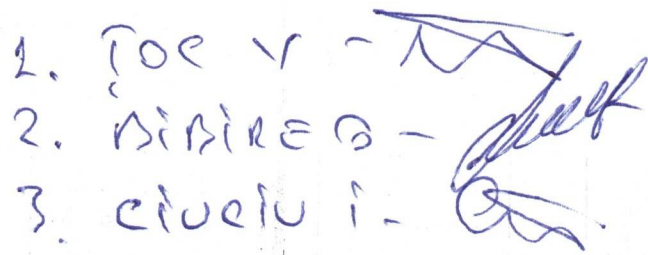 1. ȚOC V -
2. BIBIRE G -
3. CIUCIU I -